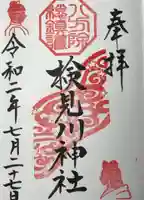 奉拝
検見川神社
令和二年七月二十七日
八方除